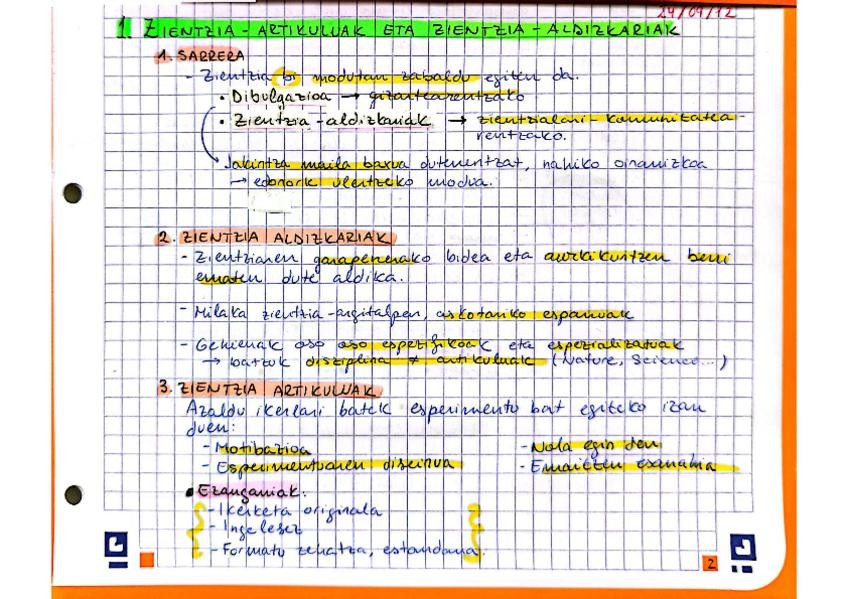 24/09/12
1. ZIENTZIA-ARTIKULUAK ETA ZIENTZIA-ALDIZKARIAK
1. SARRERA
- Zientzia bi modutan zabaldu egiten da.
• Dibulgazioa → gizartearentzako
• Zientzia-aldizkariak → zientzialari-komunitatea-
rentzako.
Jakintza maila baxua dutenentzat, nahiko oinarrizkoa
→ edonork ulertzeko modua.
2. ZIENTZIA ALDIZKARIAK
- Zientziaren garapenerako bidea eta aurkikuntzen berri
ematen dute aldika.
- Milaka zientzia-argitalpen, askotariko esparruak
- Gehienak oso oso espezifikoak eta espezializatuak
→ batzuk disziplina ≠ artikuluak (Nature, Science...)
3. ZIENTZIA ARTIKULUAK
Azaldu ikerlari batek esperimentu bat egiteko izan
duen:
- Motibazioa
- Nola egin den
- Esperimentuaren diseinua
- Emaitzen esanahia
• Ezaugarriak:
- Ikerketa originala
- Ingelesez
- Formatu zehatza, estandarra.
2